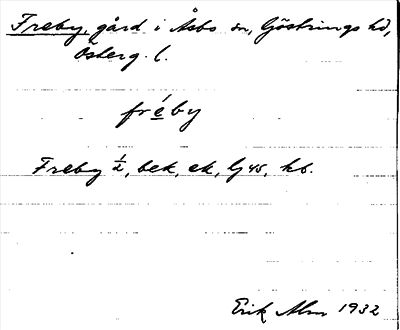 Freby, gård i Åsbo sn, Göstrings hd,
Österg. l.
fréby
Freby ½, bek, ek, Gj 45, kb.
Erik Alm 1932